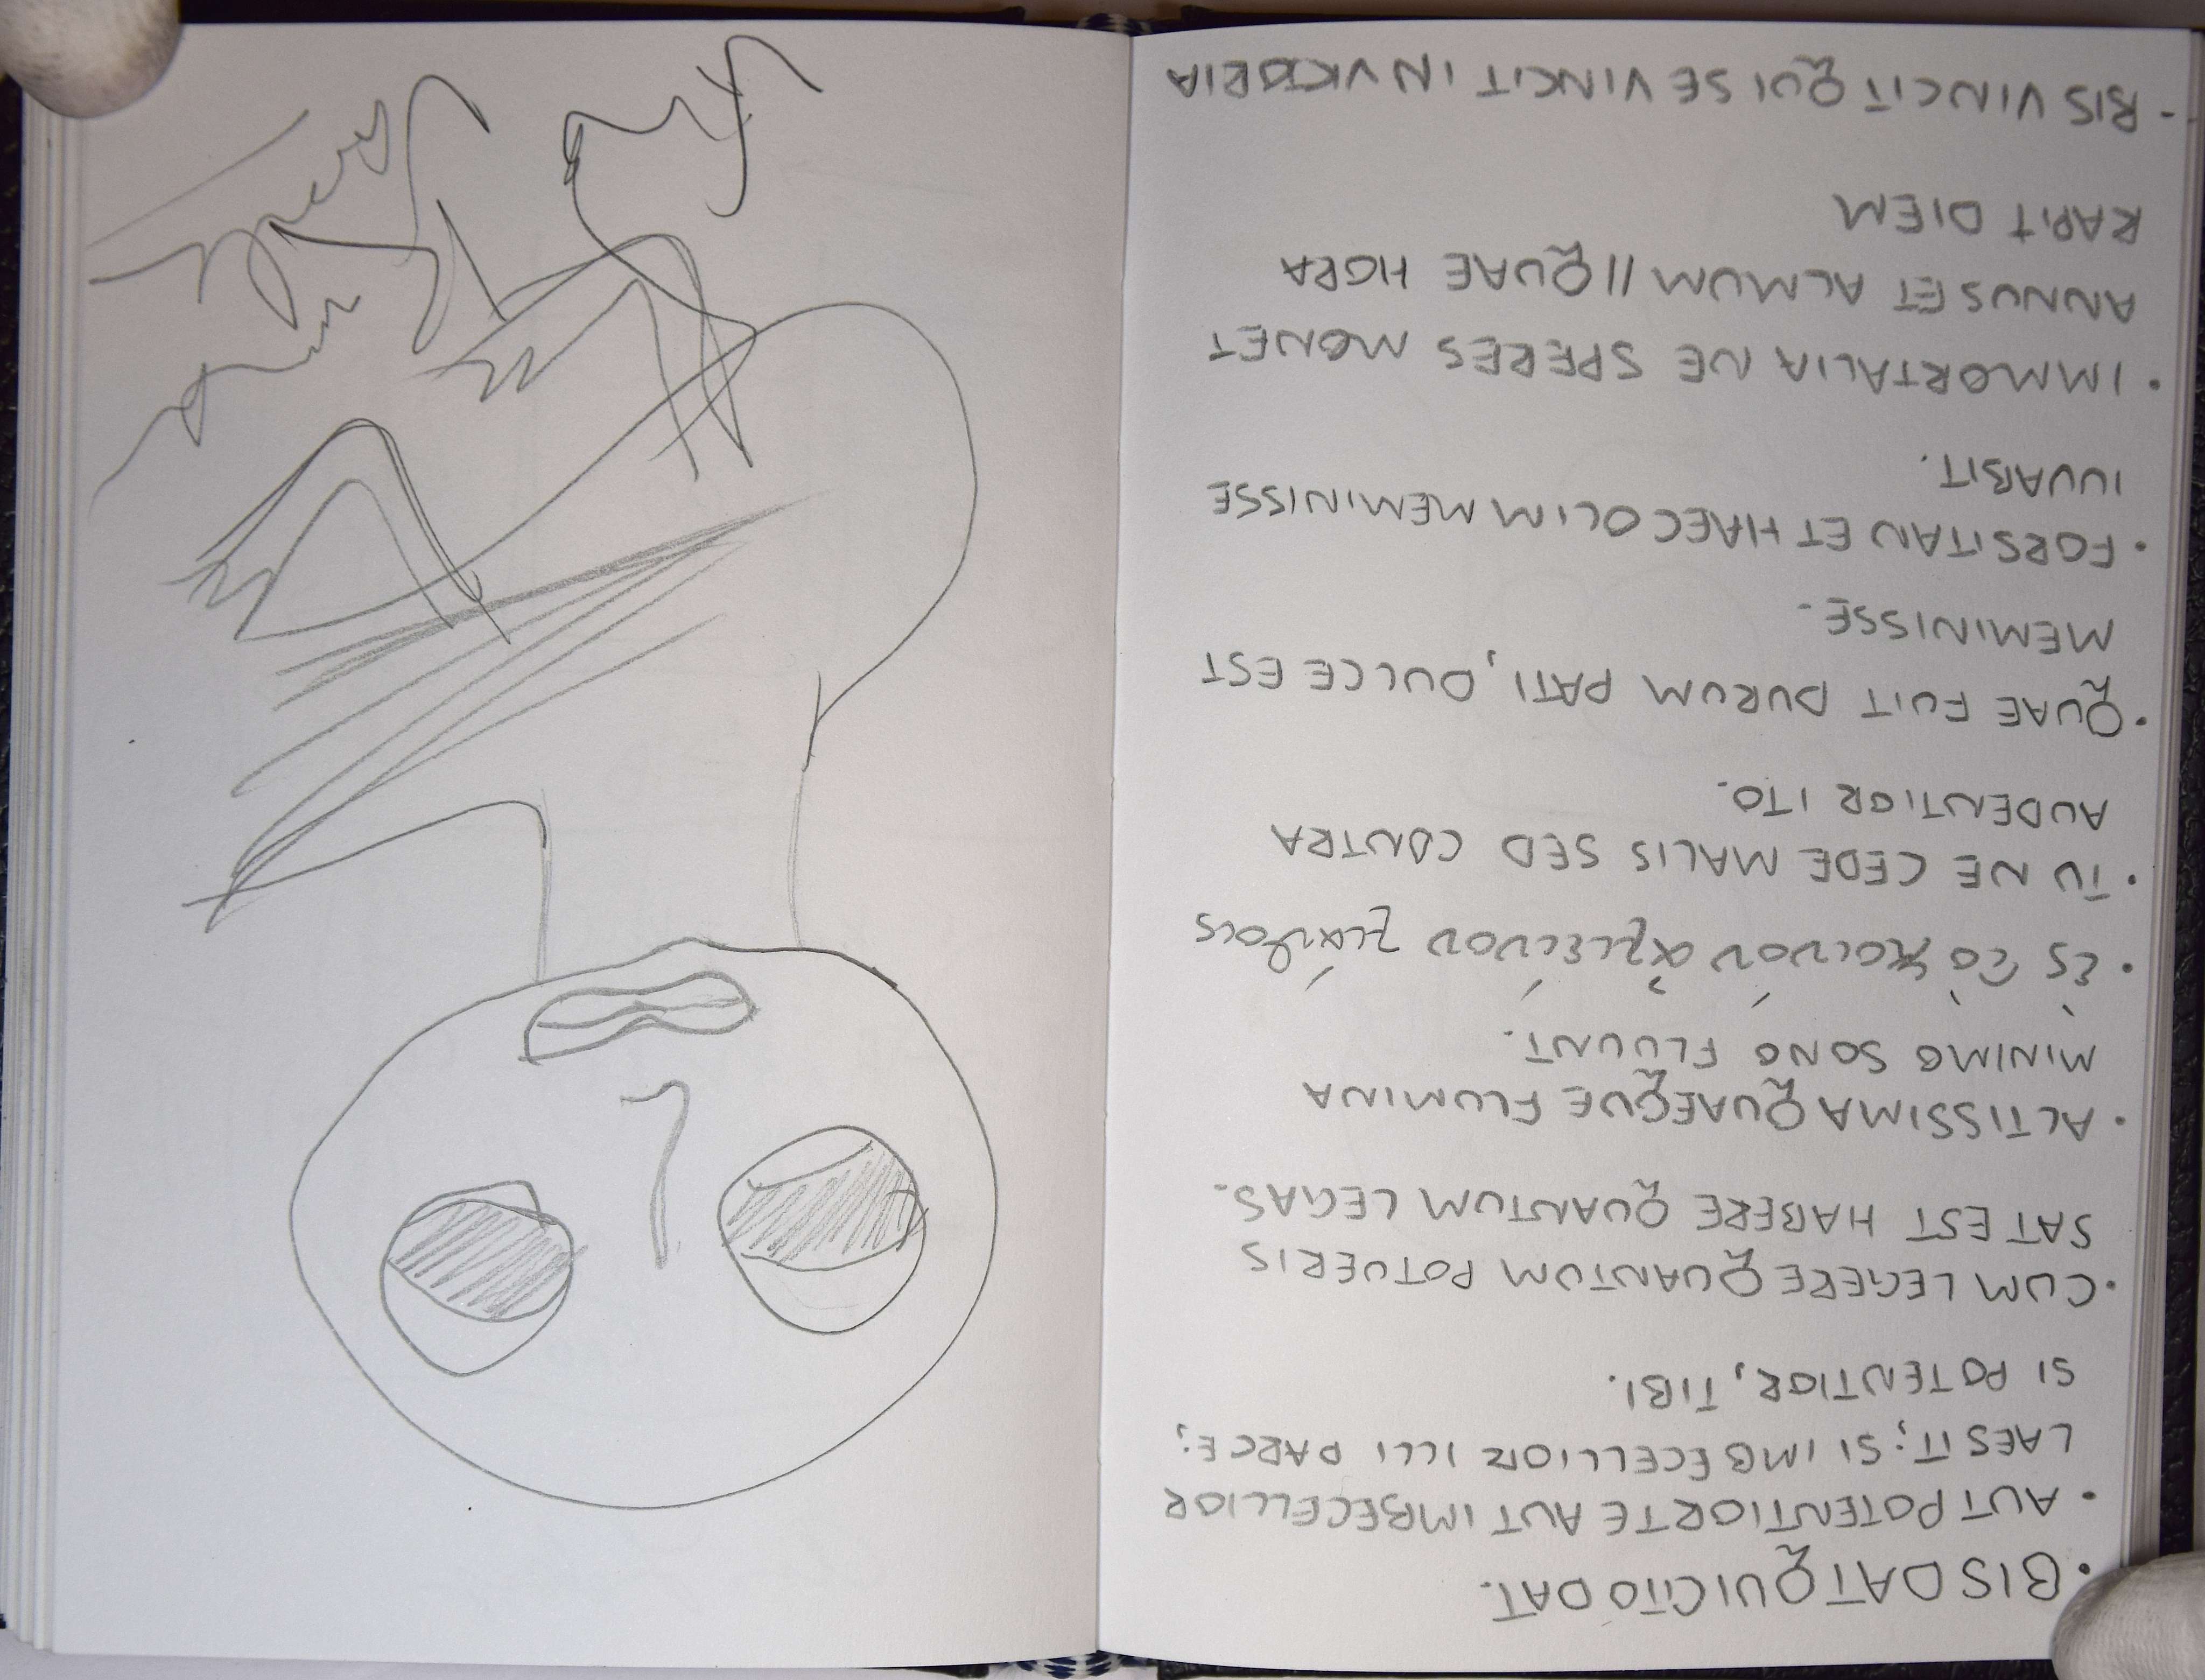 • BIS DAT QUI CITO DAT.
• AUT POTENTIOR TE AUT IMBECELLIOR
LAESIT; SI IMBECELLIOR ILLI PARCE;
SI POTENTIOR, TIBI.
• CUM LEGERE QUANTUM POTUERIS
SAT EST HABERE QUANTUM LEGAS.
• ALTISSIMA QUAEQUE FLUMINA
MINIMO SONO FLUUNT.
• ὲς τὸ κοινόν
• TU NE CEDE MALIS SED CONTRA
AUDENTIOR ITO.
• QUAE FUIT DURUM PATI, DULCE EST
MEMINISSE.
• FORSITAN ET HAEC OLIM MEMINISSE
IUVABIT.
• IMMORTALIA NE SPERES MONET
ANNUS ET ALMUM // QUAE HORA
RAPIT DIEM
- BIS VINCIT QUI SE VINCIT IN VICTORIA